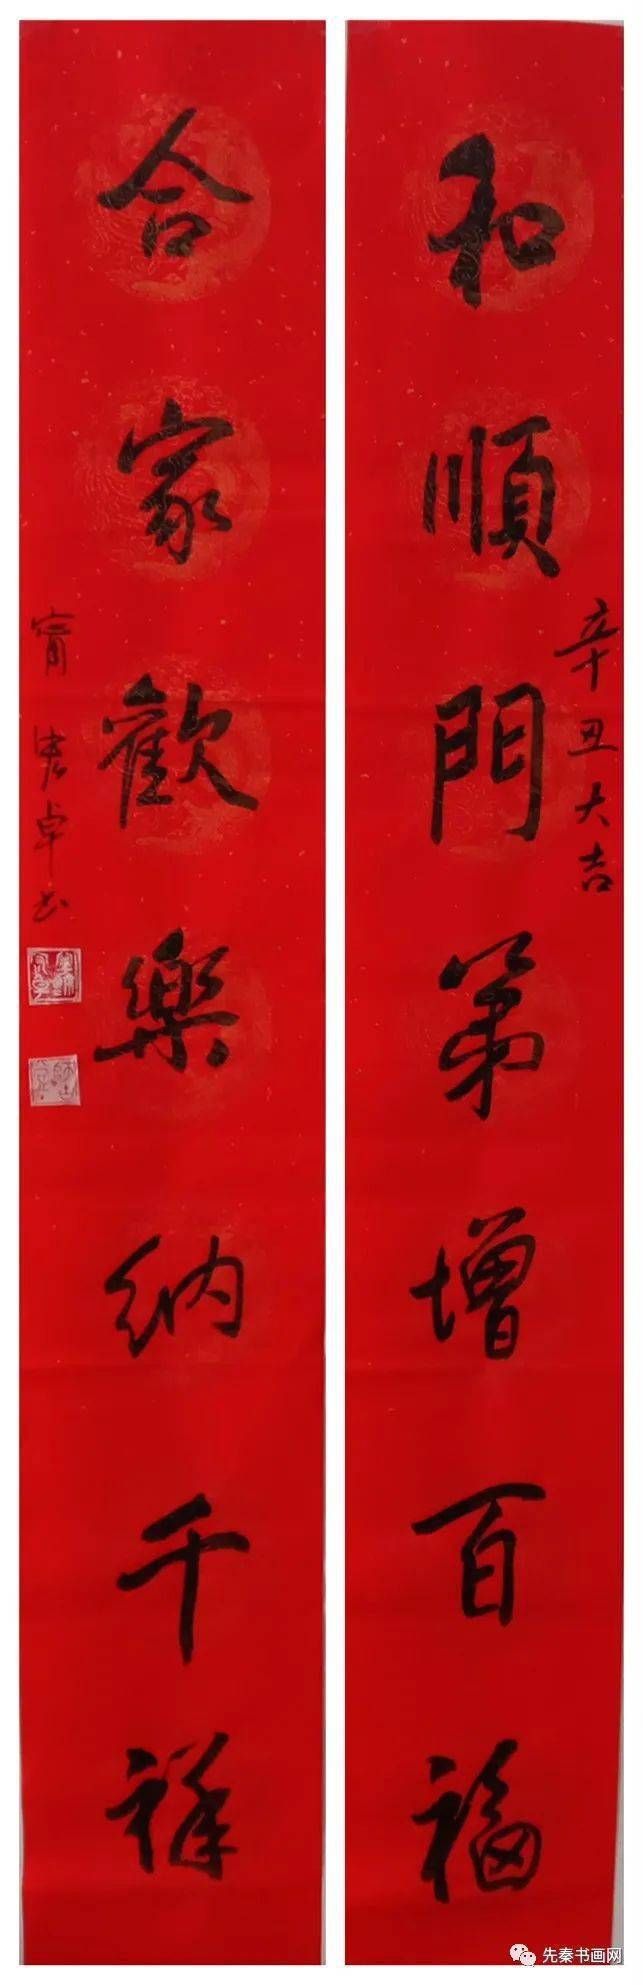 和順門第增百福
辛丑大吉
合家歡樂納千祥
卓书
先秦书画网